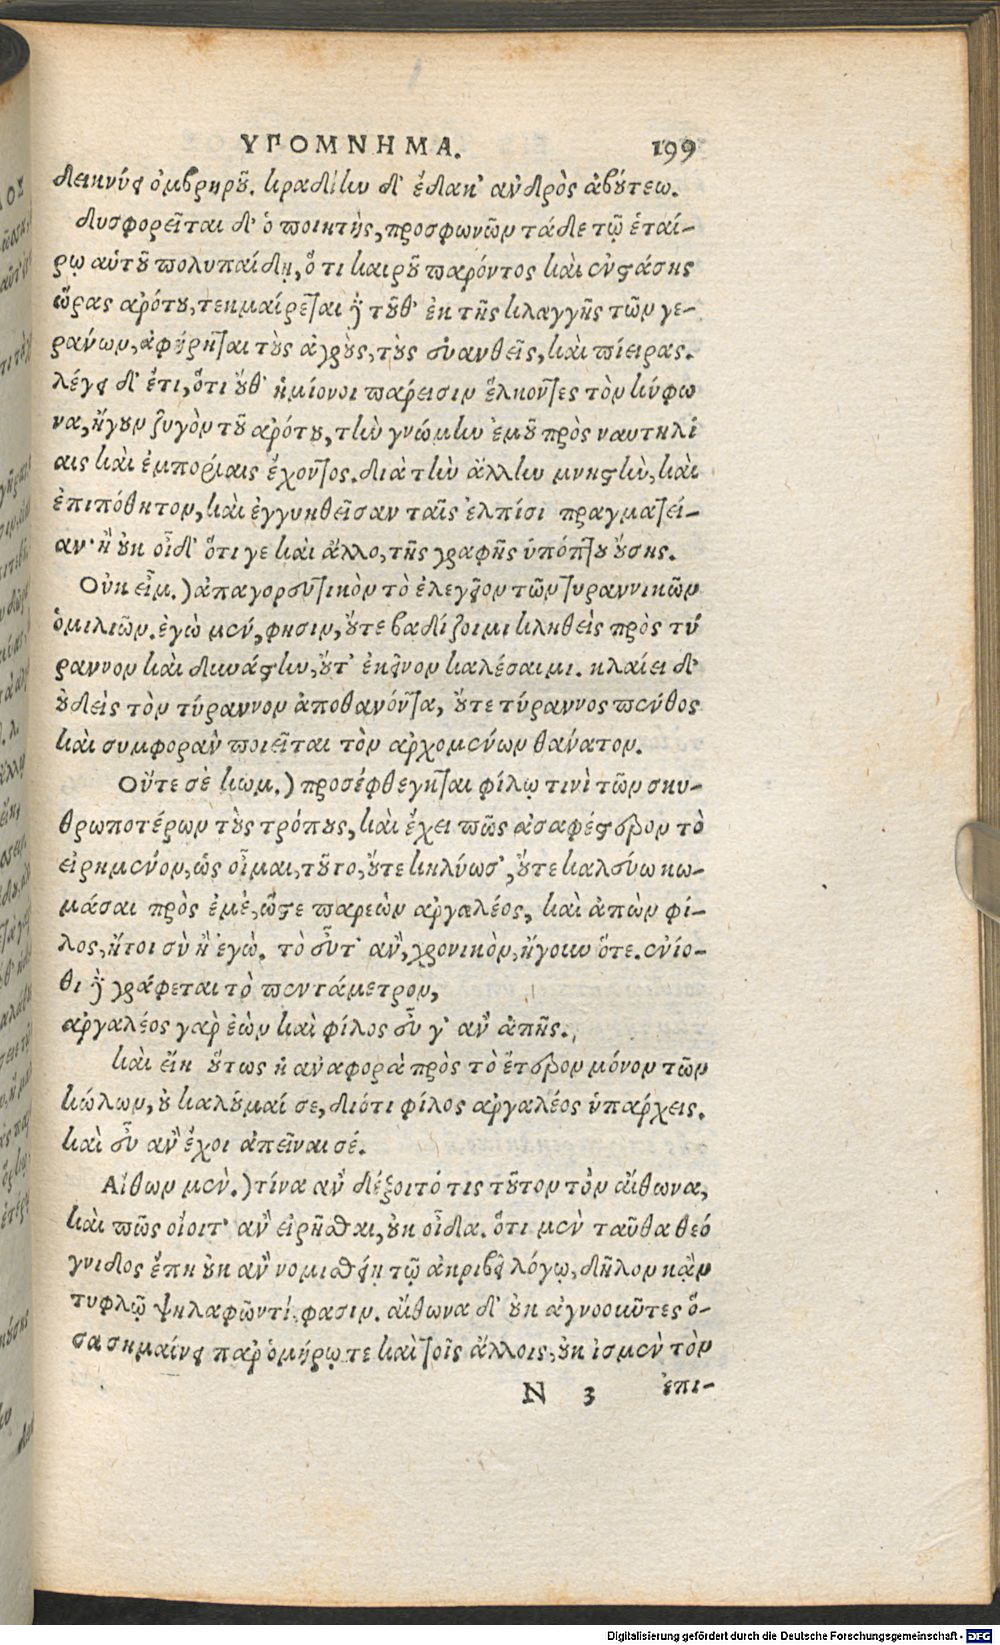 ΥΠΟΜΝΗΜΑ. 199
δεικνύει ὀμβρηροῦ. κραδίην δ' ἔδακ' ἀνδρὸς ἀβούτεω.
δυσφορεῖται δ' ὁ ποιητὴς, προσφωνῶν τάδε τῷ ἑταί-
ρῳ αὑτοῦ πολυπαίδῃ, ὅ τι καιροῦ παρόντος καὶ ἐνστάσης
ὥρας ἀρότου, τεκμαίρεται γὰρ τοῦθ' ἐκ τῆς κλαγγῆς τῶν γε-
ράνων, ἀφῄρηται τοὺς ἀγροὺς, τοὺς εὐανθεῖς, καὶ πίειρας.
λέγει δ' ἔτι, ὅτι οὔθ' ἡμίονοι πάρεισιν ἕλκοντες τὸν κύφω
να, ἤγουν ζυγὸν τοῦ ἀρότου, τὴν γνώμην ἐμοῦ πρὸς ναυτηλί
αις καὶ ἐμπορίαις ἔχοντος. διὰ τὴν ἄλλην μνηστὴν, καὶ
ἐπιπόθητον, καὶ ἐγγυηθεῖσαν ταῖς ἐλπίσι πραγματεί-
αν· ἢ οὐκ οἶδ' ὅτι γε καὶ ἄλλο, τῆς γραφῆς ὑπόπτου οὔσης.
Οὐκ εἶμ.) ἀπαγορευτικὸν τὸ ἐλεγεῖον τῶν τυραννικῶν
ὁμιλιῶν. ἐγὼ μὲν, φησιν, οὔτε βαδίζοιμι κληθεὶς πρὸς τύ
ραννον καὶ δυνάστην, οὔτ' ἐκεῖνον καλέσαιμι. κλαίει δ'
οὐδεὶς τὸν τύραννον ἀποθανόντα, οὔτε τύραννος πένθος
καὶ συμφορὰν ποιεῖται τὸν ἀρχομένων θάνατον.
Οὔτε σὲ κωμ.) προσέφθεγκται φίλῳ τινὶ τῶν σκυ-
θρωποτέρων τοὺς τρόπους, καὶ ἔχει πῶς ἀσαφέστερον τὸ
εἰρημένον, ὡς οἶμαι, τοῦτο, οὔτε κηλύωσ', οὔτε καλεύω κω-
μάσαι πρὸς ἐμέ, ὥστε παρεὼν ἀργαλέος, καὶ ἀπὼν φί-
λος, ἤτοι σὺ ἢ ἐγώ. τὸ εὖτ' ἂν, χρονικὸν, ἤγουν ὅτε. ἐνίο-
θι γὰρ γράφεται τὸ πεντάμετρον,
ἀργαλέος γὰρ ἐὼν καὶ φίλος εὖ γ' ἂν ἀπῇς.
καὶ εἴη οὕτως ἡ ἀναφορὰ πρὸς τὸ ἕτερον μόνον τῶν
κώλων, οὐ καλοῦμαί σε, διότι φίλος ἀργαλέος ὑπάρχεις.
καὶ εὖ ἂν ἔχοι ἀπεῖναι σέ.
Αἴθων μὲν.) τίνα ἂν δέξοιτό τις τοῦτον τὸν αἴθωνα,
καὶ πῶς οἴοιτ' ἂν εἰρῆσθαι, οὐκ οἶδα. ὅτι μὲν ταῦθα θεό
γνιδος ἔπη οὐκ ἂν νομισθείη τῷ ἀκριβεῖ λόγῳ, δῆλον κἂν
τυφλῷ ψηλαφῶντί, φασιν. αἴθωνα δ' οὐκ ἀγνοοῦντες ὅ-
σα σημαίνει παρ' ὁμήρῳ τε καὶ τοῖς ἄλλοις, οὐκ ἴσμεν τὸν
N 3 ἐπι-
Digitalisierung gefördert durch die Deutsche Forschungsgemeinschaft - DFG